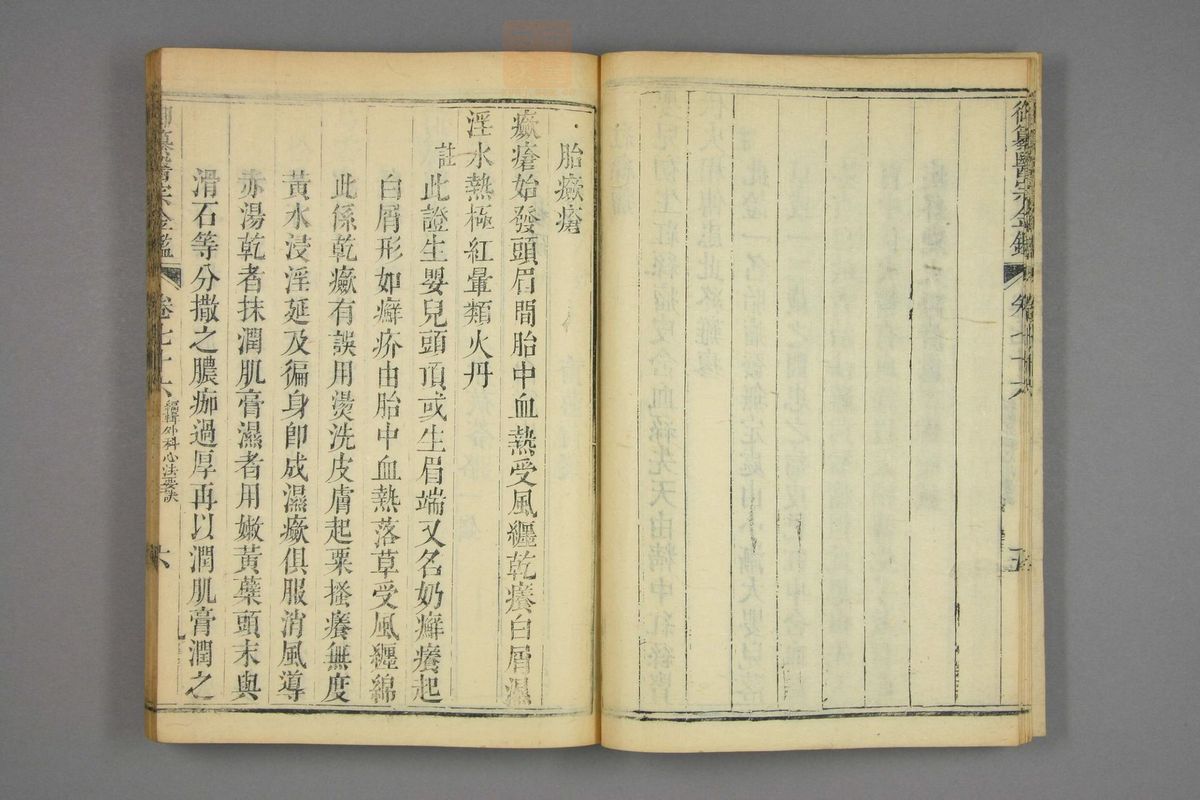 御纂醫宗金鑑 卷七十六 五
胎㿋瘡
㿋瘡始發頭眉間胎中血熱受風纏乾癢白屑濕
淫水熱極紅暈類火丹
註此證生嬰兒頭頂或生眉端又名奶癬癢起
白屑形如癬疥由胎中血熱落草受風纏綿
此係乾㿋有誤用燙洗皮膚起粟搔癢無度
黃水浸淫延及徧身卽成濕㿋俱服消風導
赤湯乾者抹潤肌膏濕者用嫩黃蘗頭末與
滑石等分撒之膿痂過厚再以潤肌膏潤之
御纂醫宗金鑑 卷七十六 編輯外科心法要訣 六